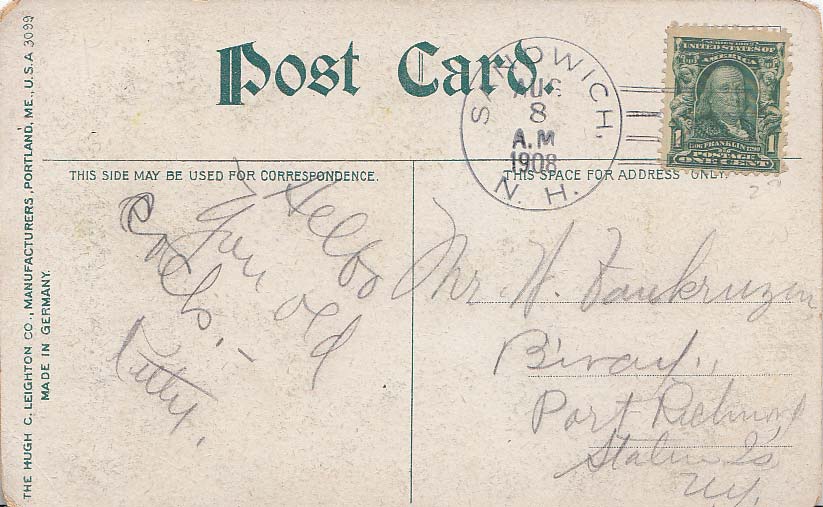 Post Card.
SANDWICH,
AUG
8
A.M
1908
N. H.
SERIES 1902
UNITED STATES OF
AMERICA
1 1
FRANKLIN
POSTAGE
ONE CENT
THIS SIDE MAY BE USED FOR CORRESPONDENCE.
THIS SPACE FOR ADDRESS ONLY.
Hello
You old
Kitty.
Mr. H. Vankruzen
Port Richmond
Staten Is
N.Y.
THE HUGH C. LEIGHTON CO., MANUFACTURERS, PORTLAND, ME., U.S.A 3099
MADE IN GERMANY.